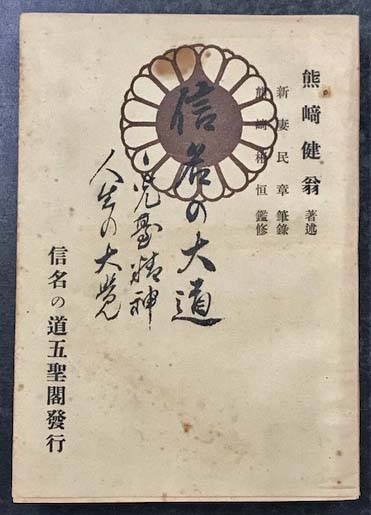 熊﨑健翁 著述
新凄民章 筆錄
熊﨑 恒 鑑修
信名の大道
精神
人生の大覚
信名の道五聖閣發行